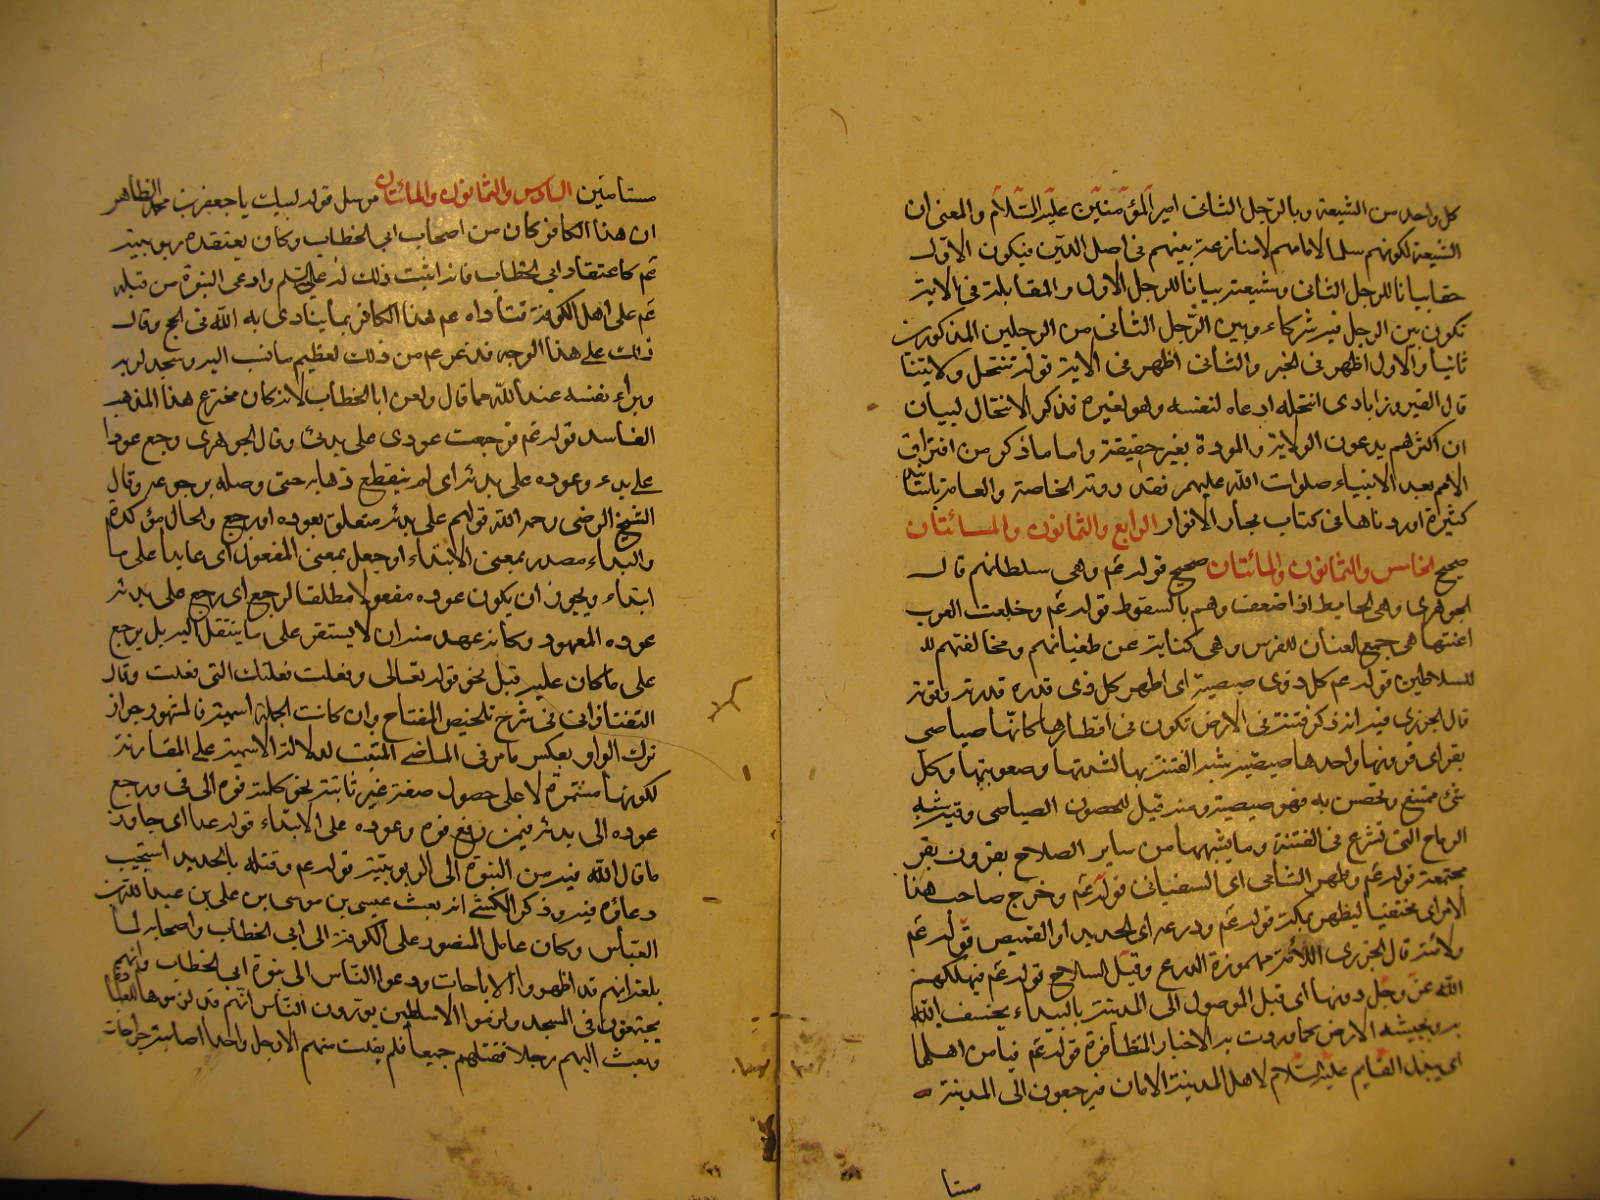 كل واحد من الشيعة وبالرّجل الثانى امير المؤمنين عليه السّلام والمعنى ان
الشيعة لكونهم سلما لامامهم لا منازعة بينهم فى اصل الدّين فيكون الاوّل
حقا بيانا للرجل الثانى وشيعته بيانا للرجل الاول والمقابلة فى الاية
تكون بين الرجل فيه شركاء وبين الرّجل الثانى من الرجلين المذكورين
ثانيا والاول اظهر فى الخبر والثانى اظهر فى الاية قوله تنتحل ولايتنا
قال الفيروزابادى انتحله ادعاه لنفسه وهو لغيره فذكر الانتحال لبيان
ان اكثرهم يدعون الولاية والمودة بغير حقيقة واما ما ذكر من افتراق
الامم بعد الانبياء صلوات الله عليهم فقد روته الخاصة والعامة باسانيد
كثيرة اوردناها فى كتاب بحار الانوار الرابع والثمانون والمائتان
صحيح الخامس والثمانون والمائتان صحيح قوله عم وهى سلطانهم قال
الجوهرى وهى الحايط اذا ضعف وهم بالسقوط قوله عم وخلعت العرب
اعنتها هى جمع العنان للفرس وهى كناية عن طغيانهم ومخالفتهم لل
للسلاطين قوله عم كل ذى صيصية اى اظهر كل ذى قدرة قدرته وقوته
قال الجزرى فيه انه ذكر فتنة فى الارض تكون فى اقطارها كانّها صياصى
بقر اى قرونها واحدها صيصية شبه الفتنة بها لشدتها وصعوبتها وكل
شئ ممتنع وتحصن به فهو صيصية ومنه قيل للحصون الصياصى وقيل شبه
الرماح التى تشرع فى الفتنة وما يشبهها من ساير السلاح بقرون بقر
مجتمعة قوله عم وظهر الشامى اى السفيانى قوله عم وخرج صاحب هذا
الامر اى مختفيا ليظهر بمكة قوله عم ودرعه اى الحديد او القميص قوله عم
ولامته قال الجزرى اللأمة مهموزة الدرع وقيل السلاح قوله عم فيهلكهم
الله عز وجل دونها اى قبل الوصول الى المدينة بالبيداء يخسف الله
به وبجيشه الارض كما وردت به الاخبار المتظافرة قوله عم فيأمن اهلها
اى يبذل القايم عليه السّلام لاهل المدينة الامان فيرجعون الى المدينة
مستا
مستأمنين السادس والثمانون والمائتان مرسل قوله لبيك يا جعفر بن محمد الظاهر
ان هذا الكافر كان من اصحاب ابى الخطاب وكان يعتقد ربوبيته
عم كاعتقاد ابى الخطاب فانه اثبت ذلك له عليه السّلم وادعى النبوة من قبله
عم على اهل الكوفة فناداه عم هذا الكافر بما ينادى به الله فى الحج وقال
ذلك على هذا الوجه فذعر عم من ذلك لعظيم ما نسب اليه وسجد لربه
وبرأ نفسه عند الله مما قال ولعن ابا الخطاب لانه كان مخترع هذا المذهب
الفاسد قوله عم فرجعت عودى على بدئى وقال الجوهرى رجع عودا
على بدء وعوده على بدئه اى لم ينقطع ذهابه حتى وصله برجوعه وقال
الشيخ الرضى رحمه الله قولهم على بدئه متعلق بعوده او رجع والحال مؤكدة
والبداء مصدر بمعنى الابتداء او جعل بمعنى المفعول اى عايدا على ما
ابتداء ويجوز ان يكون عوده مفعولا مطلقا لرجع اى رجع على بدئه
عوده المعهود وكانه عهد منه ان لا يستقر على ما ينتقل اليه بل يرجع
على ما كان عليه قبل نحو قوله تعالى وفعلت فعلتك التى فعلت وقال
التفتازانى فى شرح تلخيص المفتاح وان كانت الجملة اسمية فالمشهور جواز
ترك الواو بعكس ما مر فى الماضى المثبت لدلالة الاسمية على المقارنة
لكونها مستمرة لا على حصول صفة غير ثابتة نحو كلمته فوه الى فى ورجع
عوده الى بدئه فيمن رفع فوه وعوده على الابتداء قوله عدا اى جاوز
ما قال الله فيه من النبوة الى الربوبيّة قوله عم وقتله بالحديد استجيب
دعاؤه فيه وذكر الكشى انه بعث عيسى بن موسى بن على بن عبد الله بن
العباس وكان عامل المنصور على الكوفة الى ابى الخطاب واصحابه لما
بلغه انهم قد اظهروا الاباحات ودعوا النّاس الى نبوة ابى الخطاب وانهم
يجتمعون فى المسجد ولزموا الاساطين يورون النّاس انّهم قد لزموها للعبادة
وبعث اليهم رجلا فقتلهم جميعا فلم يفلت منهم الا رجل واحد اصابته جراحات